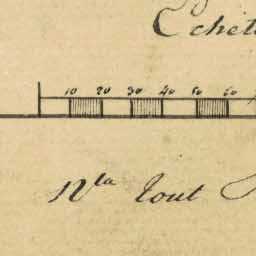 Echel
10 20 30 40 50 60
Nta Tout